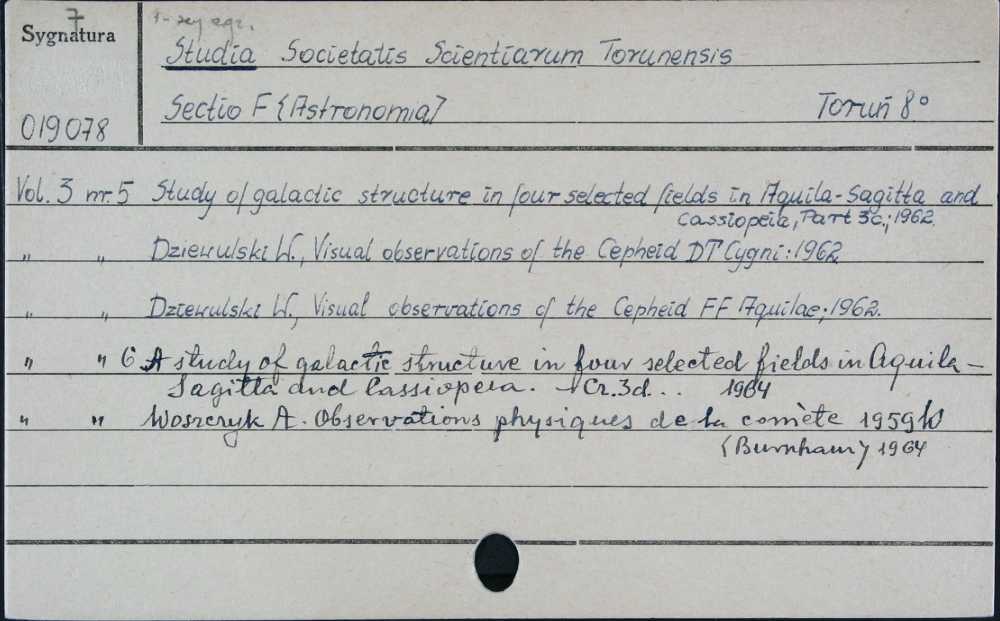 7
Sygnatura
Studia Societatis Scientiarum Torunensis
Sectio F (Astronomia) Toruń 8°
019078
Vol. 3 nr. 5 Study of galactic structure in four selected fields in Aquila-Sagitta and
Cassiopeia, Part 3c.; 1962.
" " Dziewulski W., Visual observations of the Cepheid DT Cygni: 1962
" " Dziewulski W., Visual observations of the Cepheid FF Aquilae; 1962.
" " 6 A study of galactic structure in four selected fields in Aquila –
Sagitta and Cassiopeia. 3d... 1964
" " Woszczyk A. Observations physiques de la comète 1959
(Burnham) 1964